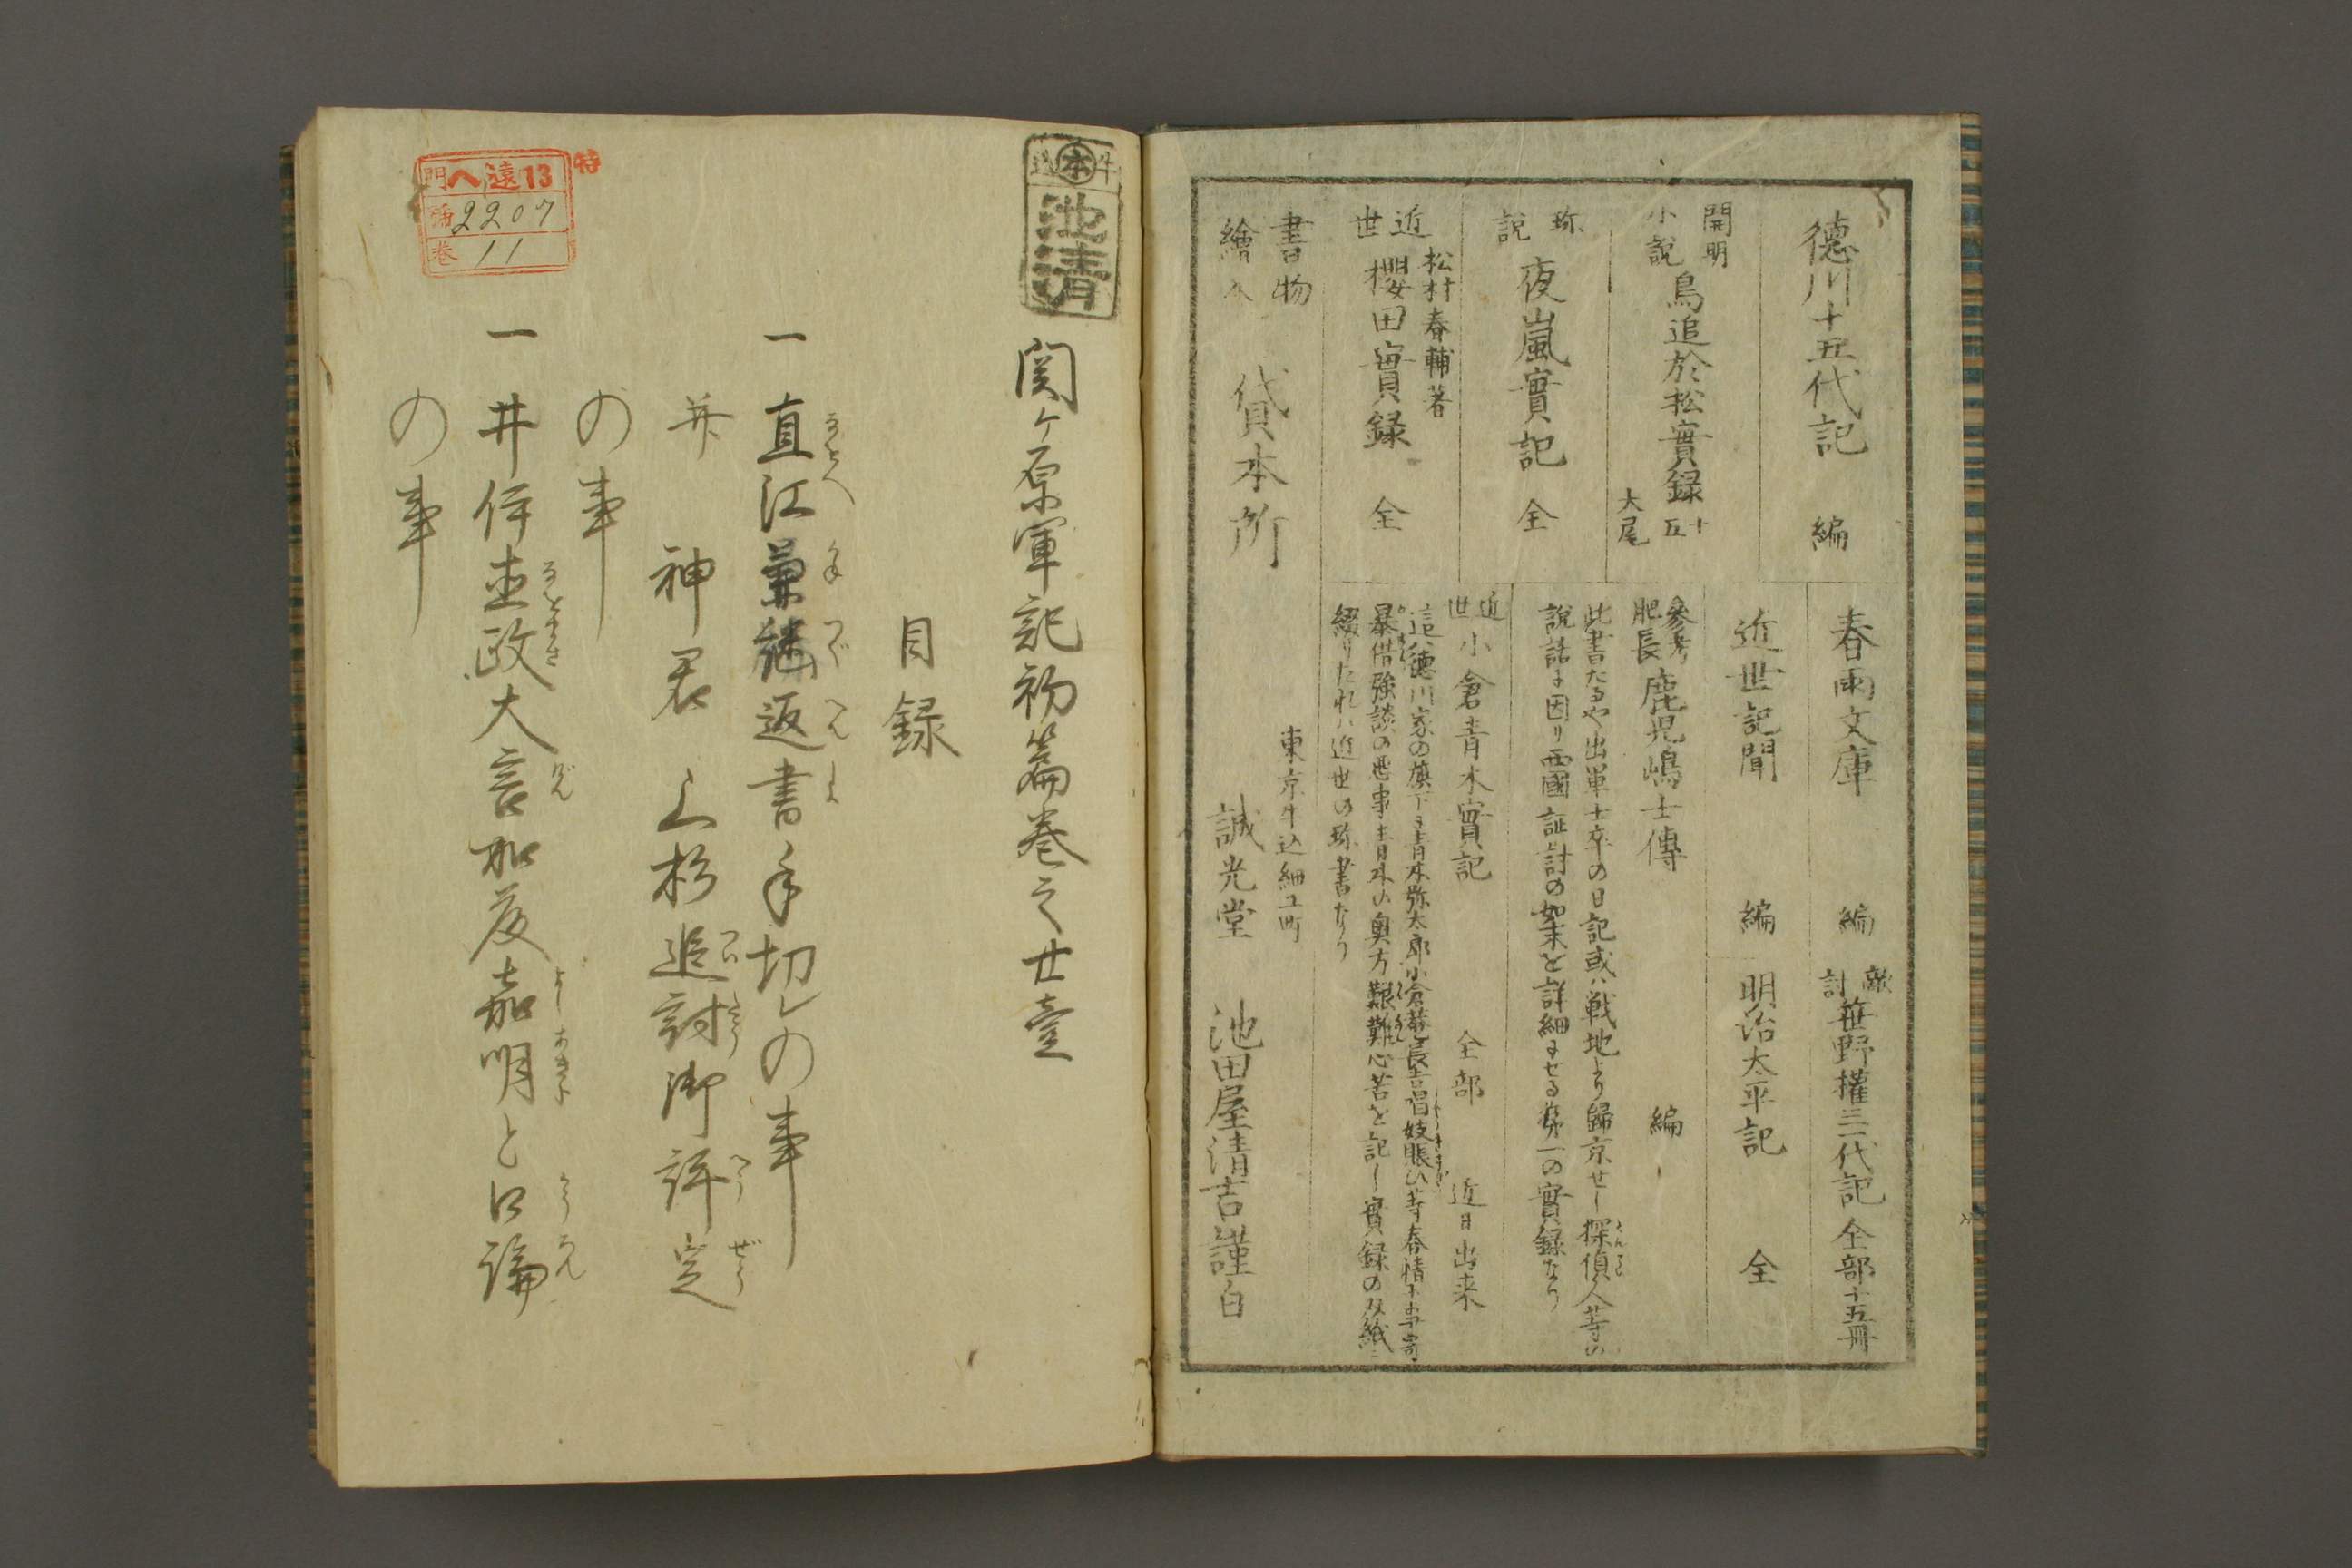 徳川十五代記 編
開明小説 鳥追於松實録 十五大尾
珎説 夜嵐實記 全
松村春輔著
近世 櫻田實録 全
書物
繪入 貸本所
春雨文庫 編
敵討 笹野權三一代記 全部十五冊
近世記聞 編
明治太平記 全
參考肥長 鹿児嶋士傳 編
此書たるや出軍士卒の日記或ハ戦地より歸京せし探偵人等の
説話に因り西國証討の始末を詳細にせる第一の實録なり
近世 小倉青木實記 全部 近日出来
這ハ徳川家の旗下に青木弥太郎小倉菴長吉唱妓賑ひ等春情に
暴借強談の悪事青木の奥方艱難心苦を記し實録の双紙に
綴りたれハ近世の珎書なり
東京牛込細工町
誠光堂 池田屋清吉謹白
牛込
本
池清
関ヶ原軍記初篇巻之廿壹
目録
一 直江兼續返書手切レの事
并 神君上杉追討御評定
の事
一 井伊直政大言加藤嘉明と口論
の事
特
門 ヘ遠13
號 2207
巻 11